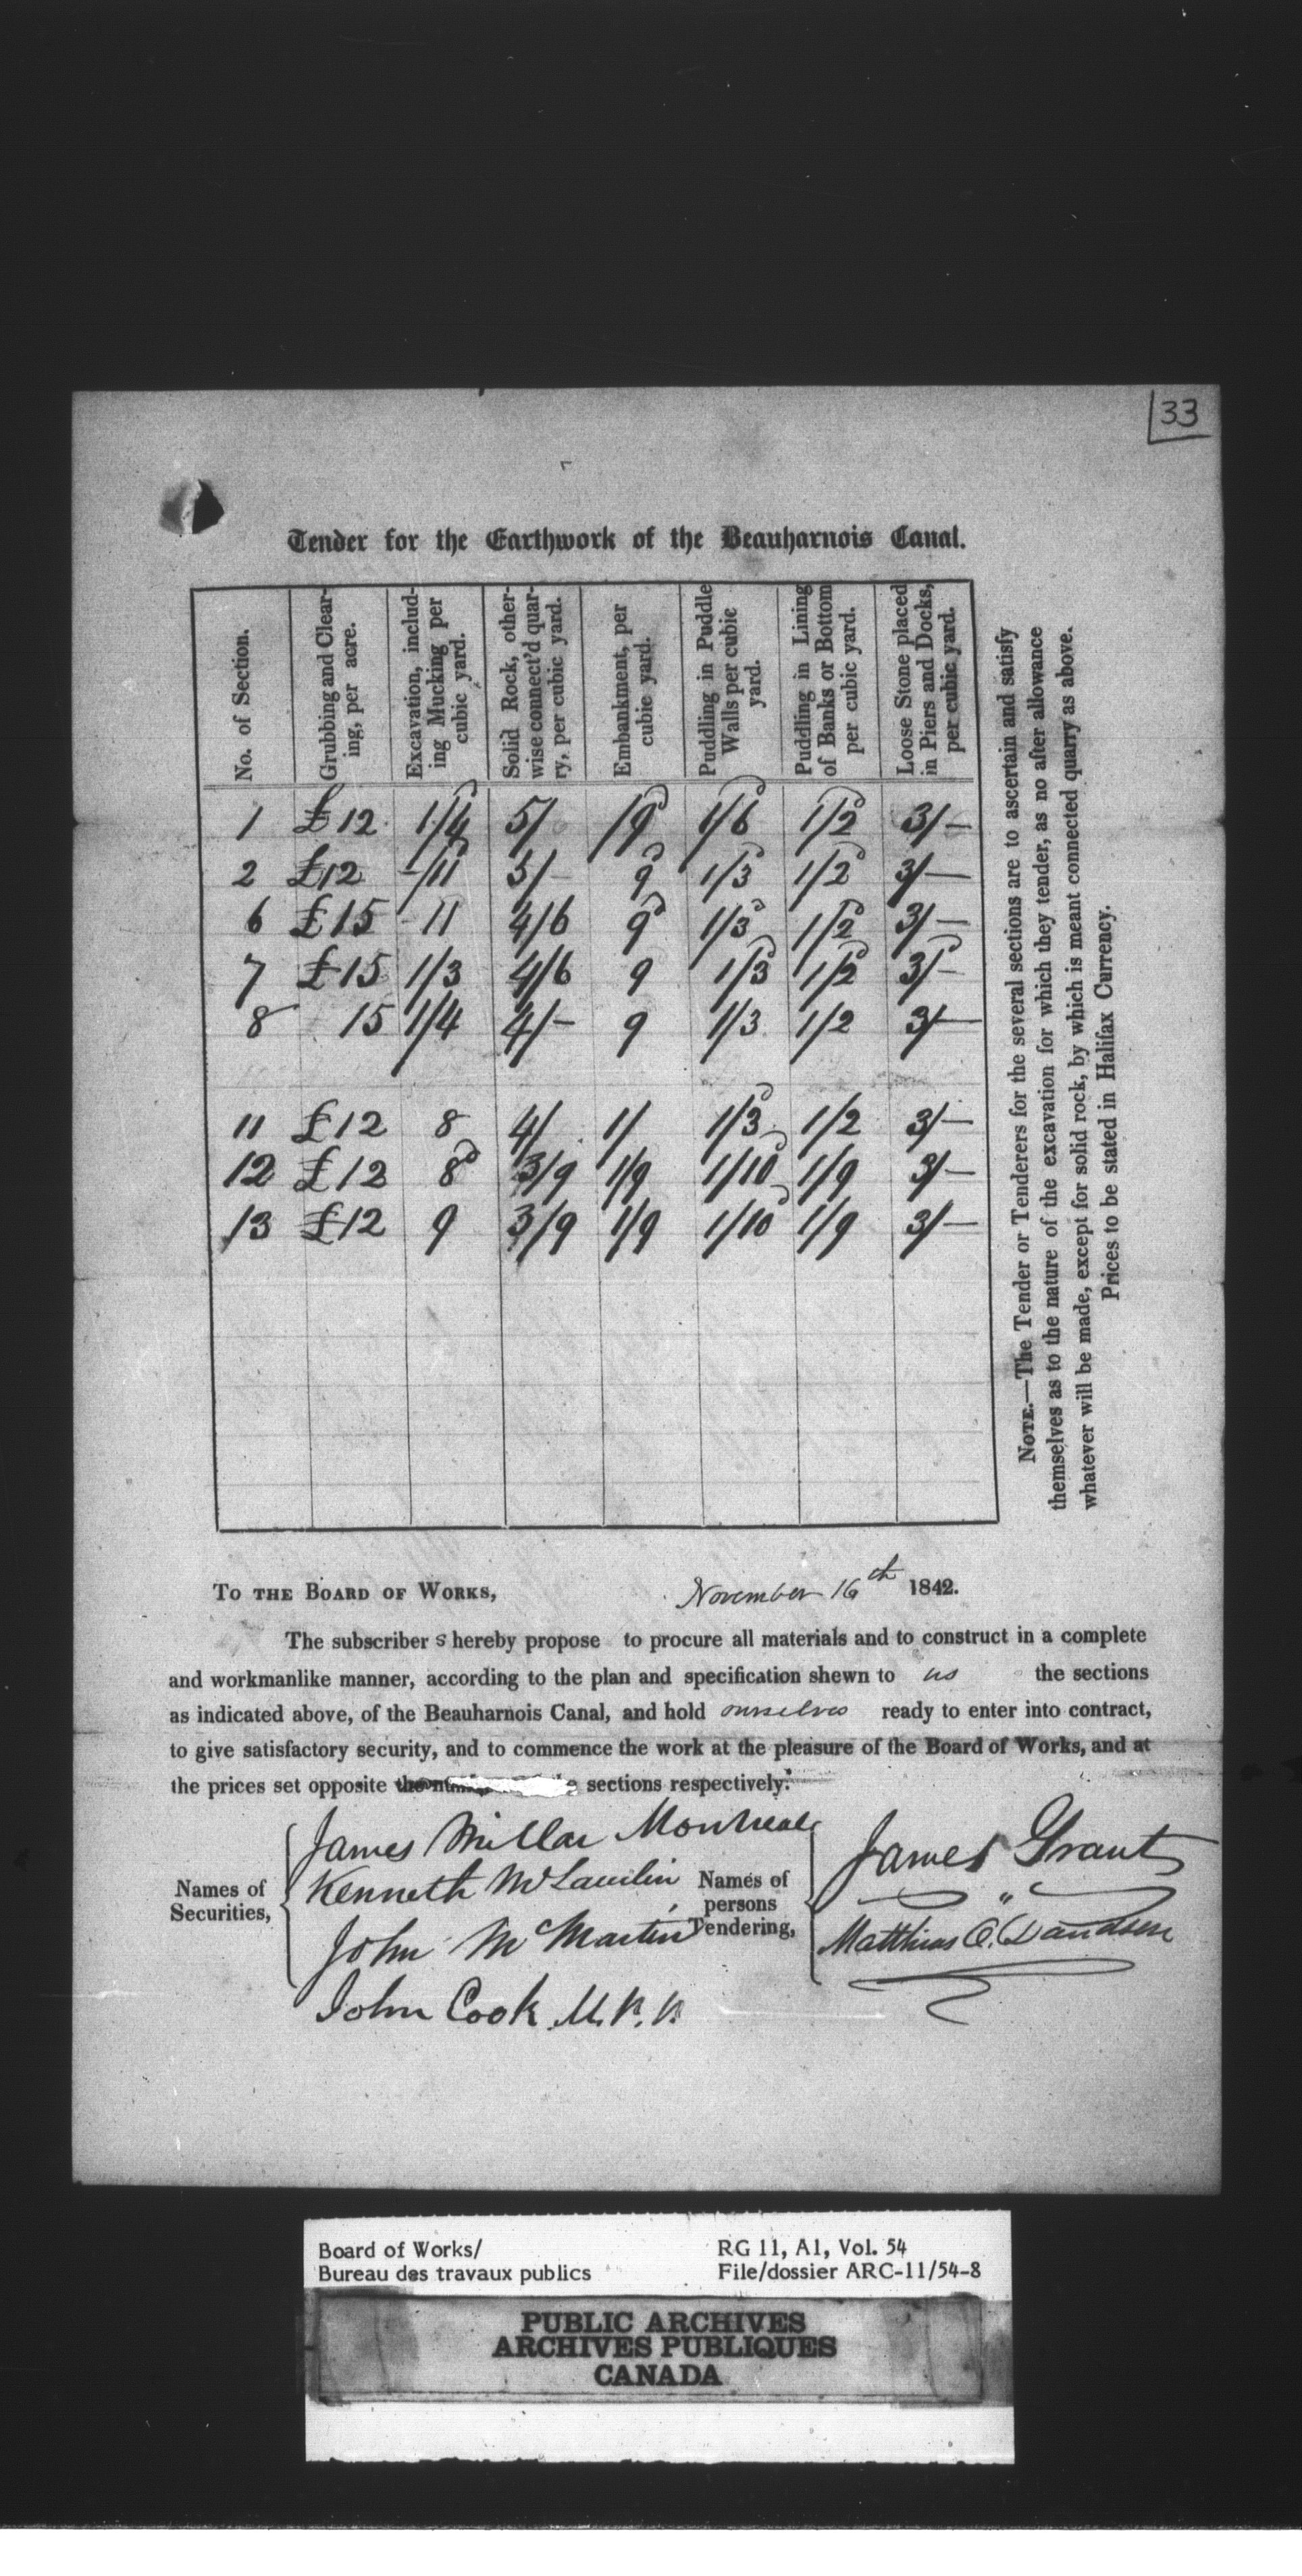 33
Tender for the Earthwork of the Beauharnois Canal.
No. of Section.
Grubbing and Clear-
ing, per acre.
Excavation, includ-
ing Mucking per
cubic yard.
Solid Rock, other-
wise connect'd quar-
ry, per cubic yard.
Embankment, per
cubic yard.
Puddling in Puddle
Walls per cubic
yard.
Puddling in Lining
of Banks or Bottom
per cubic yard.
Loose Stone placed
in Piers and Docks,
per cubic yard.
1 £12 1/4 5/ /9d 1/6 1/2 3/-
2 £12 -/11 5/- 9d 1/3 1/2 3/-
6 £15 - 11 4/6 9d 1/3 1/2 3/-
7 £15 1/3 4/6 9 1/3 1/2 3/-
8 15 1/4 4/- 9 1/3 1/2 3/-
11 £12 8 4/ 1/ 1/3 1/2 3/-
12 £12 8d 3/9 1/9 1/10 1/9 3/-
13 £12 9 3/9 1/9 1/10 1/9 3/-
NOTE.—The Tender or Tenderers for the several sections are to ascertain and satisfy
themselves as to the nature of the excavation for which they tender, as no after allowance
whatever will be made, except for solid rock, by which is meant connected quarry as above.
Prices to be stated in Halifax Currency.
TO THE BOARD OF WORKS, November 16th 1842.
The subscriber s hereby propose to procure all materials and to construct in a complete
and workmanlike manner, according to the plan and specification shewn to us the sections
as indicated above, of the Beauharnois Canal, and hold ourselves ready to enter into contract,
to give satisfactory security, and to commence the work at the pleasure of the Board of Works, and at
the prices set opposite sections respectively.
Names of
Securities,
James Millar Montreal
Kenneth McLaulin
John McMartin
John Cook M.P.P.
Names of
persons
Tendering,
James Grant
"
Matthias C.
Board of Works/
Bureau des travaux publics
RG 11, A1, Vol. 54
File/dossier ARC-11/54-8
PUBLIC ARCHIVES
ARCHIVES PUBLIQUES
CANADA